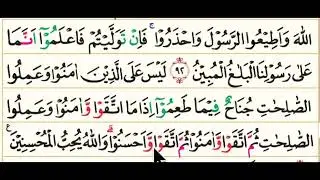 اللّٰهَ وَاَطِيْعُوا الرَّسُوْلَ وَاحْذَرُوْا ۚ فَاِنْ تَوَلَّيْتُمْ فَاعْلَمُوْٓا اَنَّمَا
عَلٰى رَسُوْلِنَا الْبَلٰغُ الْمُبِيْنُ ﴿۹۲﴾ لَيْسَ عَلَى الَّذِيْنَ اٰمَنُوْا وَعَمِلُوا
الصّٰلِحٰتِ جُنَاحٌ فِيْمَا طَعِمُوْٓا اِذَا مَا اتَّقَوْا وَّ اٰمَنُوْا وَعَمِلُوا
الصّٰلِحٰتِ ثُمَّ اتَّقَوْا وَّاٰمَنُوْا ثُمَّ اتَّقَوْا وَّاَحْسَنُوْا ؕ وَاللّٰهُ يُحِبُّ الْمُحْسِنِيْنَ